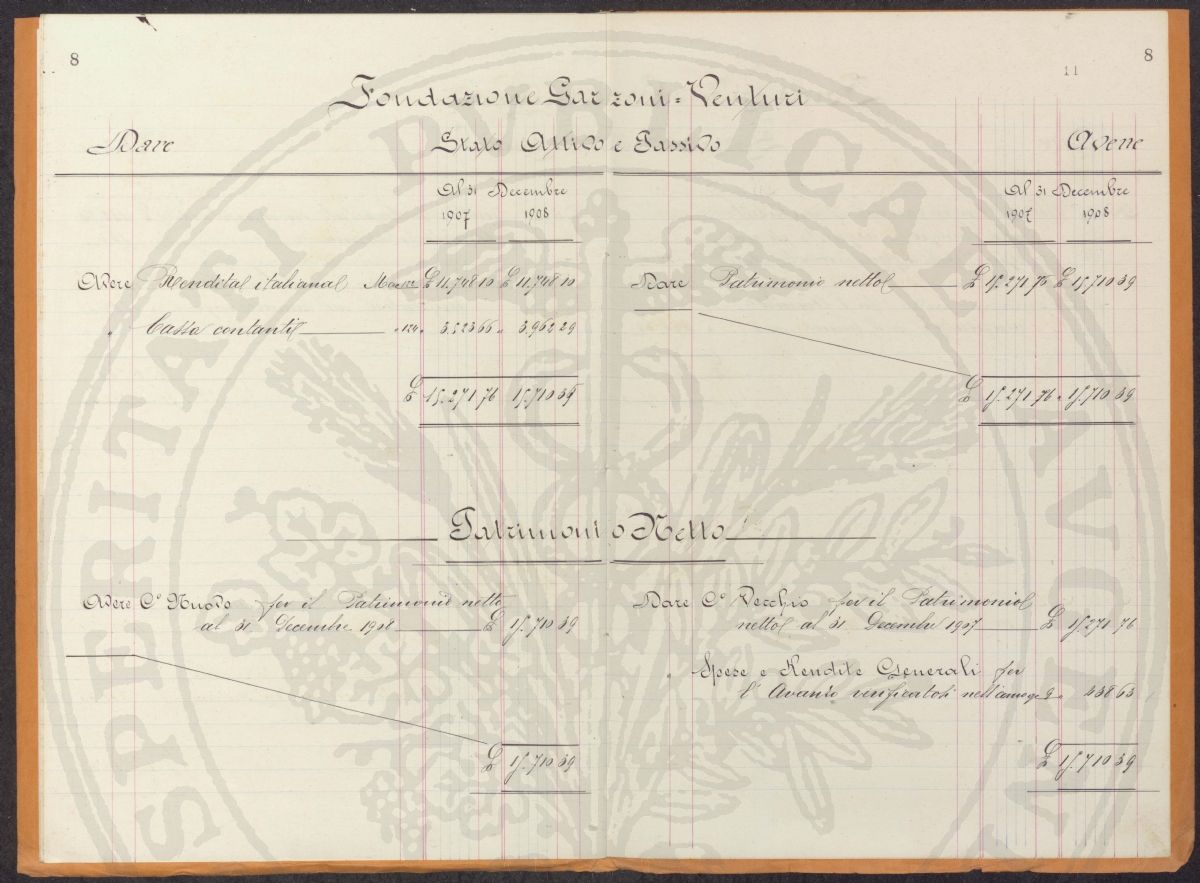 8
8
11
Fondazione Garzoni-Venturi
Dare
Stato Attivo e Passivo
Avere
Al 31 Decembre
1907 1908
Avere Rendita italiana £ 11,748 10 £ 11,748 10
" Cassa contanti " 124 " 3.523 66 " 3.962 29
£ 15.271 76 15.710 39
Al 31 Decembre
1907 1908
Dare Patrimonio netto £ 15.271 76 £ 15.710 39
£ 15.271 76 " 15.710 39
Patrimonio Netto
Avere Co Nuovo per il Patrimonio netto
al 31 Decembre 1908 £ 15.710 39
£ 15.710 39
Dare Co Vecchio per il Patrimonio
netto al 31 Decembre 1907 £ 15.271 76
" Spese e Rendite Generali per
l'Avanzo verificatosi nell'anno " 438 63
£ 15.710 39
SPERITATI PVBLICAE AVGEN